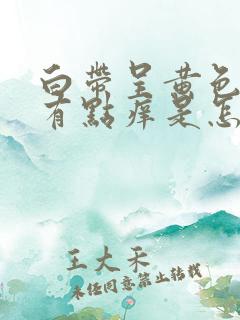 白帶呈黃色
有點痒是怎
王大禾
未经同意禁止转载